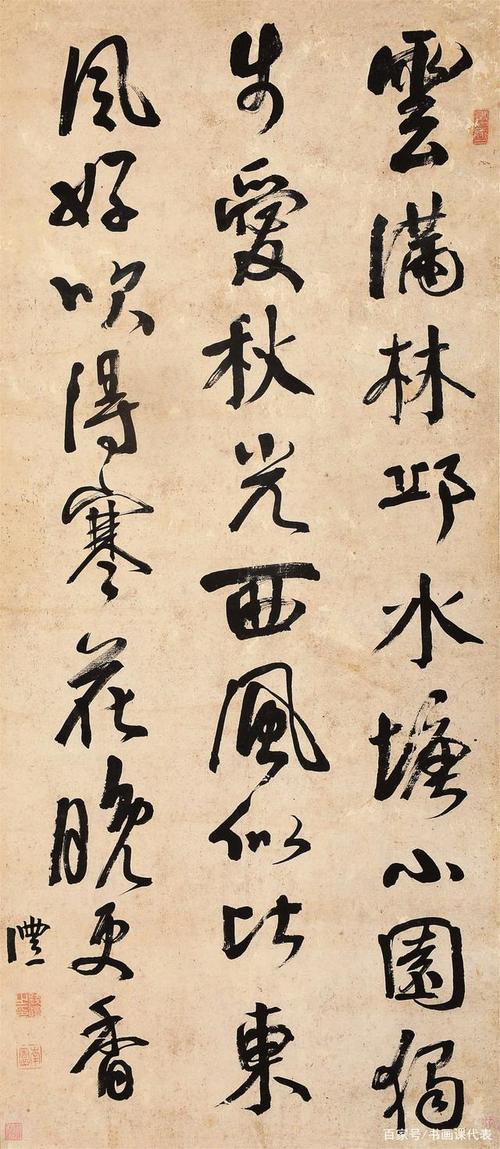 雲滿林邱水塘小園獨
步愛秋光西風似比東
風好吹得寒花晚更香
灃
南園
百家号/书画课代表